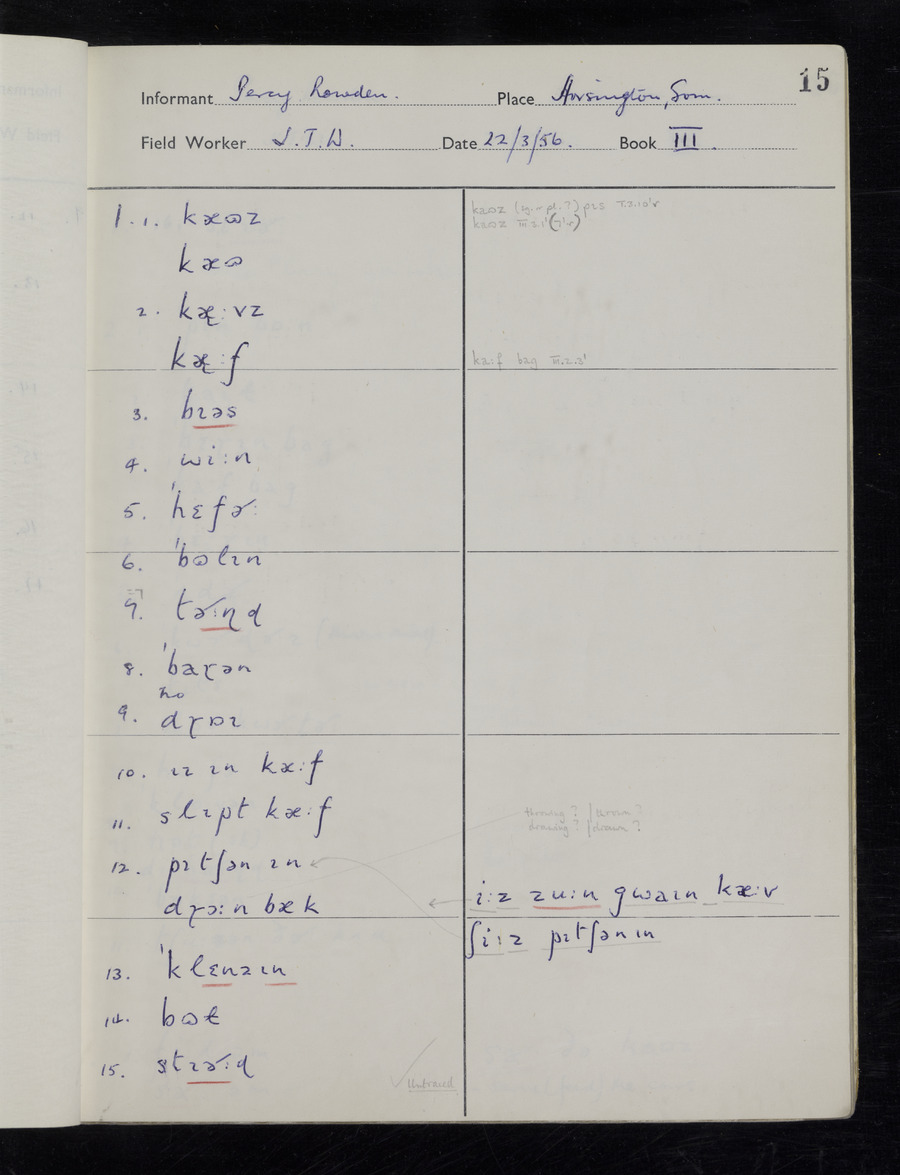 15
Informant Percy Lowden. Place Horsington, Som.
Field Worker J.T.W. Date 22/3/56. Book III.
1. 1. kæɷz
kæɷ
2. kæ̨ːvz
kæ̨ːf
3. bɪəs
4. wiːn
5. ˈhɛfɚː
6. ˈbɷlɪn
7. tɚːɳɖ
8. ˈbaɽən
9. no
dɽɒɪ
10. ɪz ɪn kæːf
11. slɪpt kæːf
12. pɪtʃən ɪn
dɽɔːn bæk
13. ˈklɛnzɪn
14. bɷɫ
15. stɪɚːɖ
kæɷz (sg. or pl.?)
kæɷz III.3.1'
kæːf bæg III.2.3'
throwing? / thrown?
drawing? / drawn?
iːz zuːn gwaɪn kæːv
ʃiːz pɪtʃənɪn
Untraced